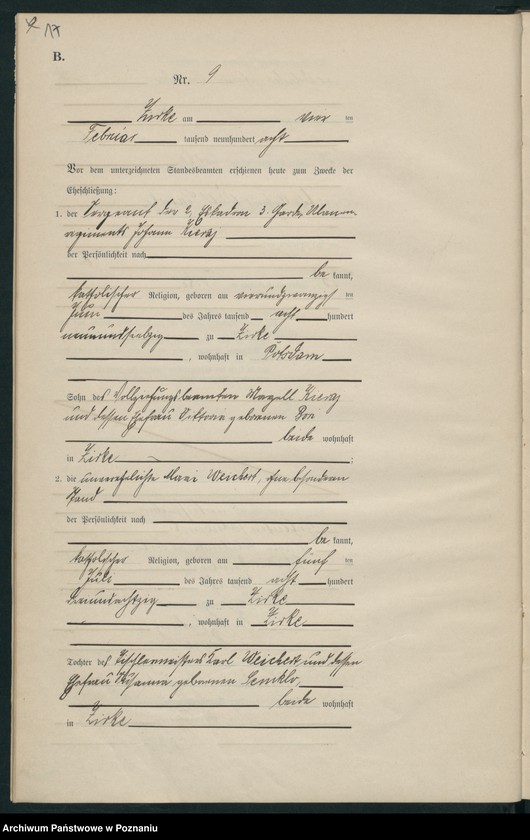 17
B.
Nr. 9
Zirke am vier ten
Februar tausend neunhundert acht
Vor dem unterzeichneten Standesbeamten erschienen heute zum Zwecke der
Eheschließung:
1. der Sergeant der 2. Eskadron 3. Garde Ulanen
regiments Johann
der Persönlichkeit nach
be kannt,
katholischer Religion, geboren am vierundzwanzigsten
Juni des Jahres tausend acht hundert
neunundsiebzig zu Zirke
, wohnhaft in Potsdam
Sohn des Vollziehungsbeamten
und dessen Ehefrau geborenen
beide wohnhaft
in Zirke ;
2. die unverehelichte Marie Weichert, ohne besonderen
Stand
der Persönlichkeit nach
be kannt,
katholischer Religion, geboren am fünf ten
Juli des Jahres tausend acht hundert
zu Zirke
, wohnhaft in Zirke
Tochter des Tischlermeisters Karl Weichert und dessen
Ehefrau Susanna geborenen
beide wohnhaft
in Zirke
Archiwum Państwowe w Poznaniu